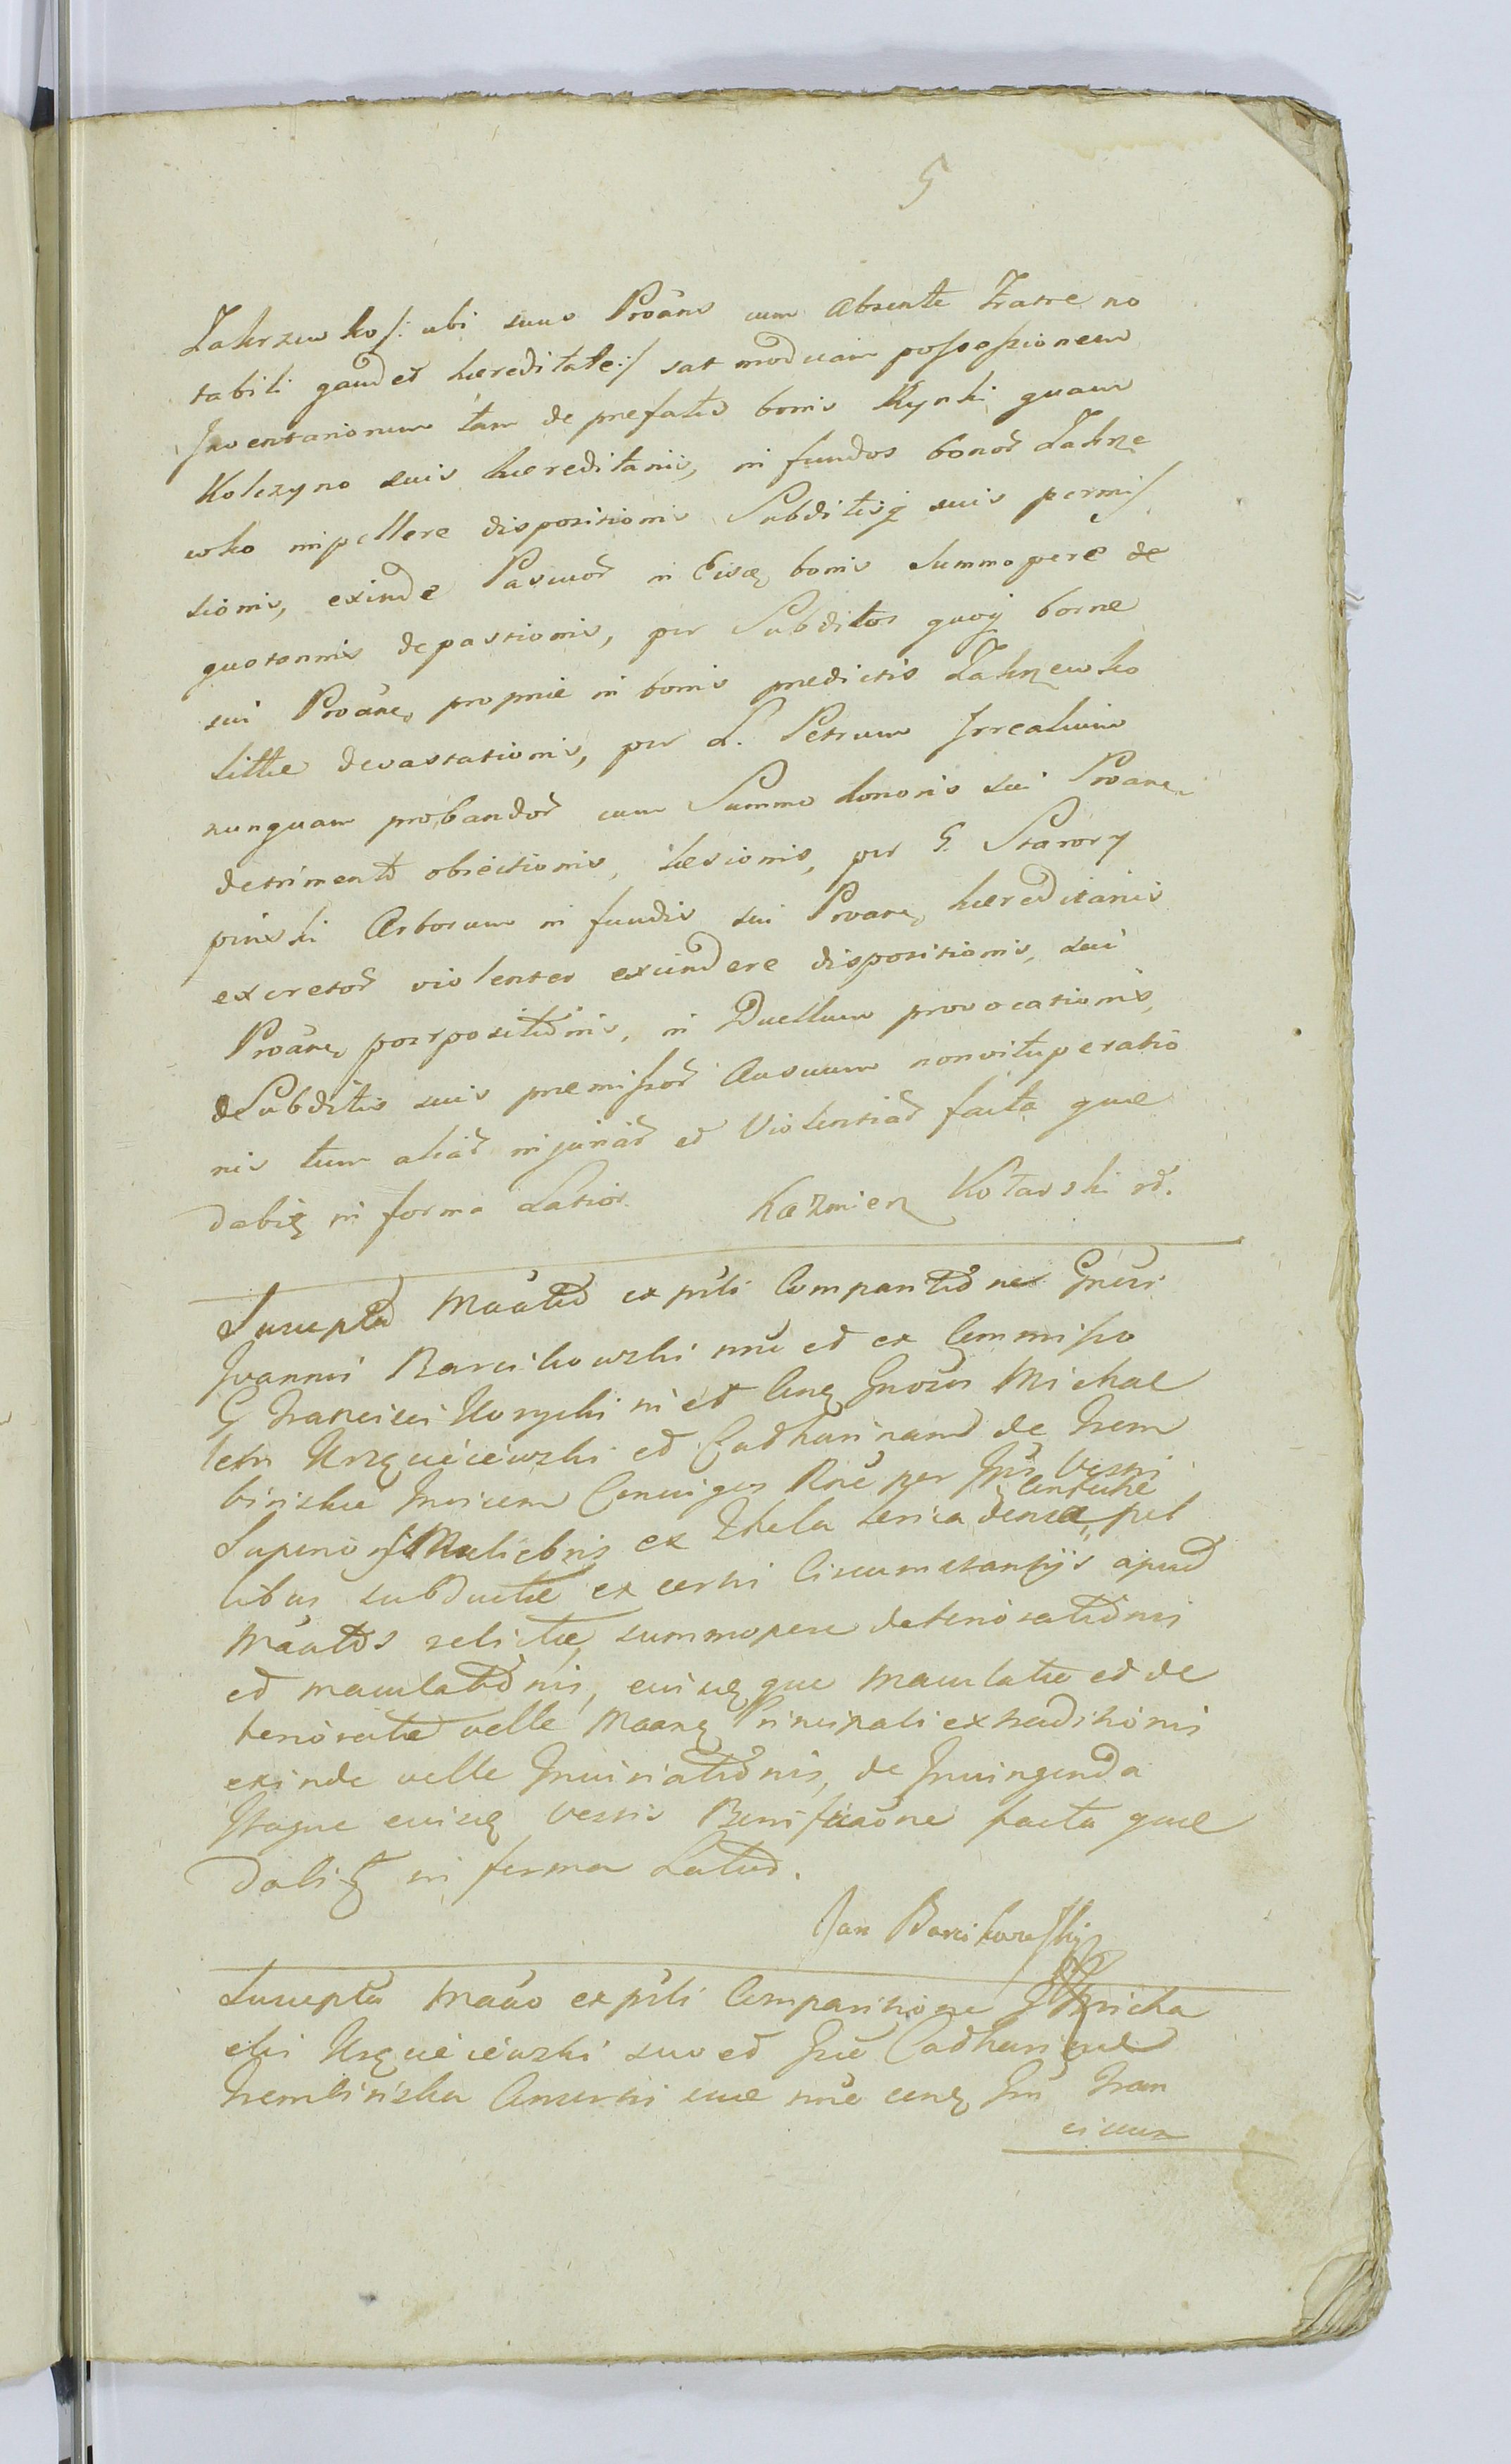 5
Zakrzewko /: ubi suus Proans cum absente Fratre no
tabili gaudet hæreditate :/ sat moducam possessionem
Inventariorum tam de præfatis bonis Kynki quam
Kolczyno suis hæreditariis, in fundos bonor Zakrze
wko impellere dispositionis Subditisq suis permis
sionis, exinde Pascuor in Eisq bonis summopere de
quotannis depastionis, per Subditos quoq borne
sui Proane, proprie in bonis prædictis Zakrzewko
littæ devastationis, per L. Petrum Irrealium
nunquam probandor cum Summo honoris sui Proane
detrimento obiectionis, læsionis, per G. Starory
pinski Arborum in fundis sui Proane, hæreditariis
excretor violenter excindere dispositionis, sui
Proane, postpositionis, in Duellum provocationis,
de Subditis suis præmissor Ausuum nonvituperatio
nis tum aliar injuriar et Violentiar facta quæ
dabit in forma Latior. Kazmierz Kotarski rd.
Suscepta Maatio ex psti Comparitione Gnusi
Joannis Barcikowski nne et ex Commisso
G Francisci Uorycki ni et Cnq Gnosus Michae
lem Urzquieiewski et Catharinam de Trem
binskie Invicem Conviges Rne per Ips Vestis
Superioris Muliebris ex Thela sericadensa, Centuhe pel
libus subductæ ex certis Circumstantijs apud
Maatos relictæ, summopere deteriorationis
et maculationis, eiusqque maculatæ et de
terioratæ velle Maanq Principali extraditionis
exinde velle Iniuriationis, de Invingenda
Itaque eiusq Vestis Bonificaone facta quæ
dabit in forma Latiori.
Jan Barcikowski
Suscepta Maao ex psti Comparitione G Micha
elis Urzquieiewski suo et Gne Catharinæ
Trembinska Consortis suæ nne conq Gn Fran
ciscum